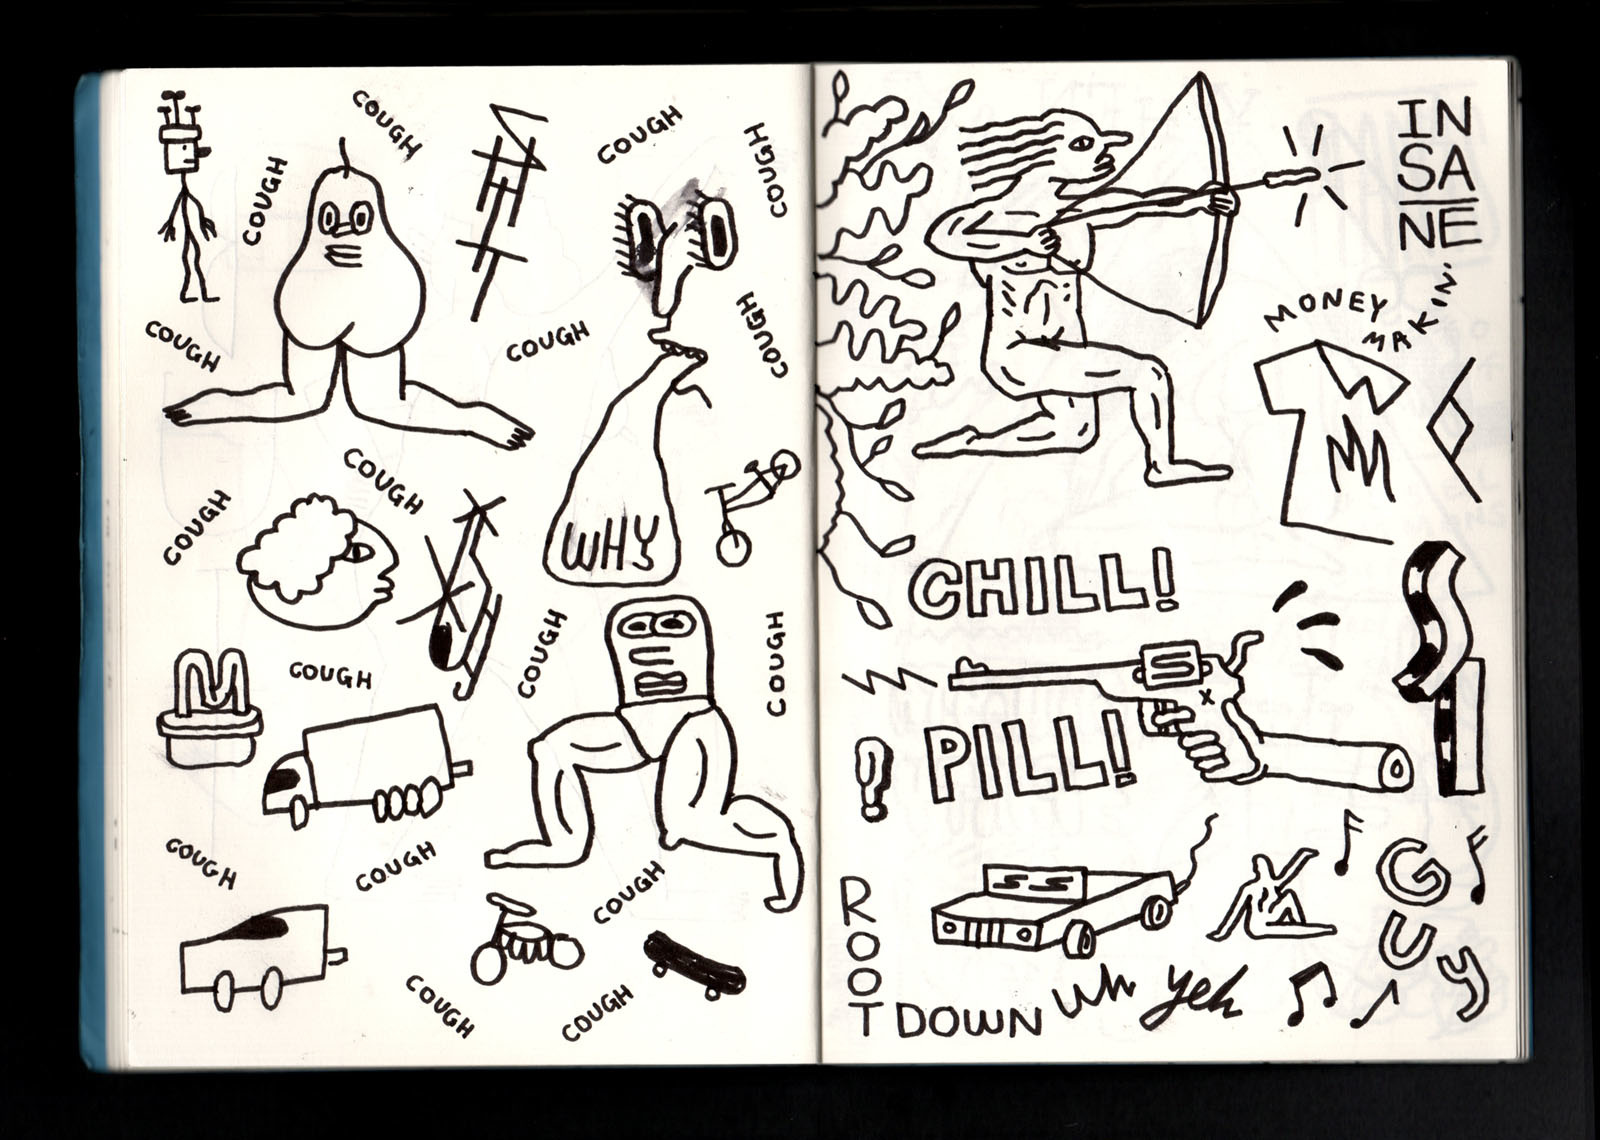 COUGH
COUGH
COUGH
COUGH
COUGH
COUGH
COUGH
COUGH
COUGH
WHY
COUGH
COUGH
COUGH
COUGH
COUGH
COUGH
COUGH
COUGH
IN
SA
NE
MONEY MAKIN'
CHILL!
PILL!
GUY
ROOT DOWN uh yeh